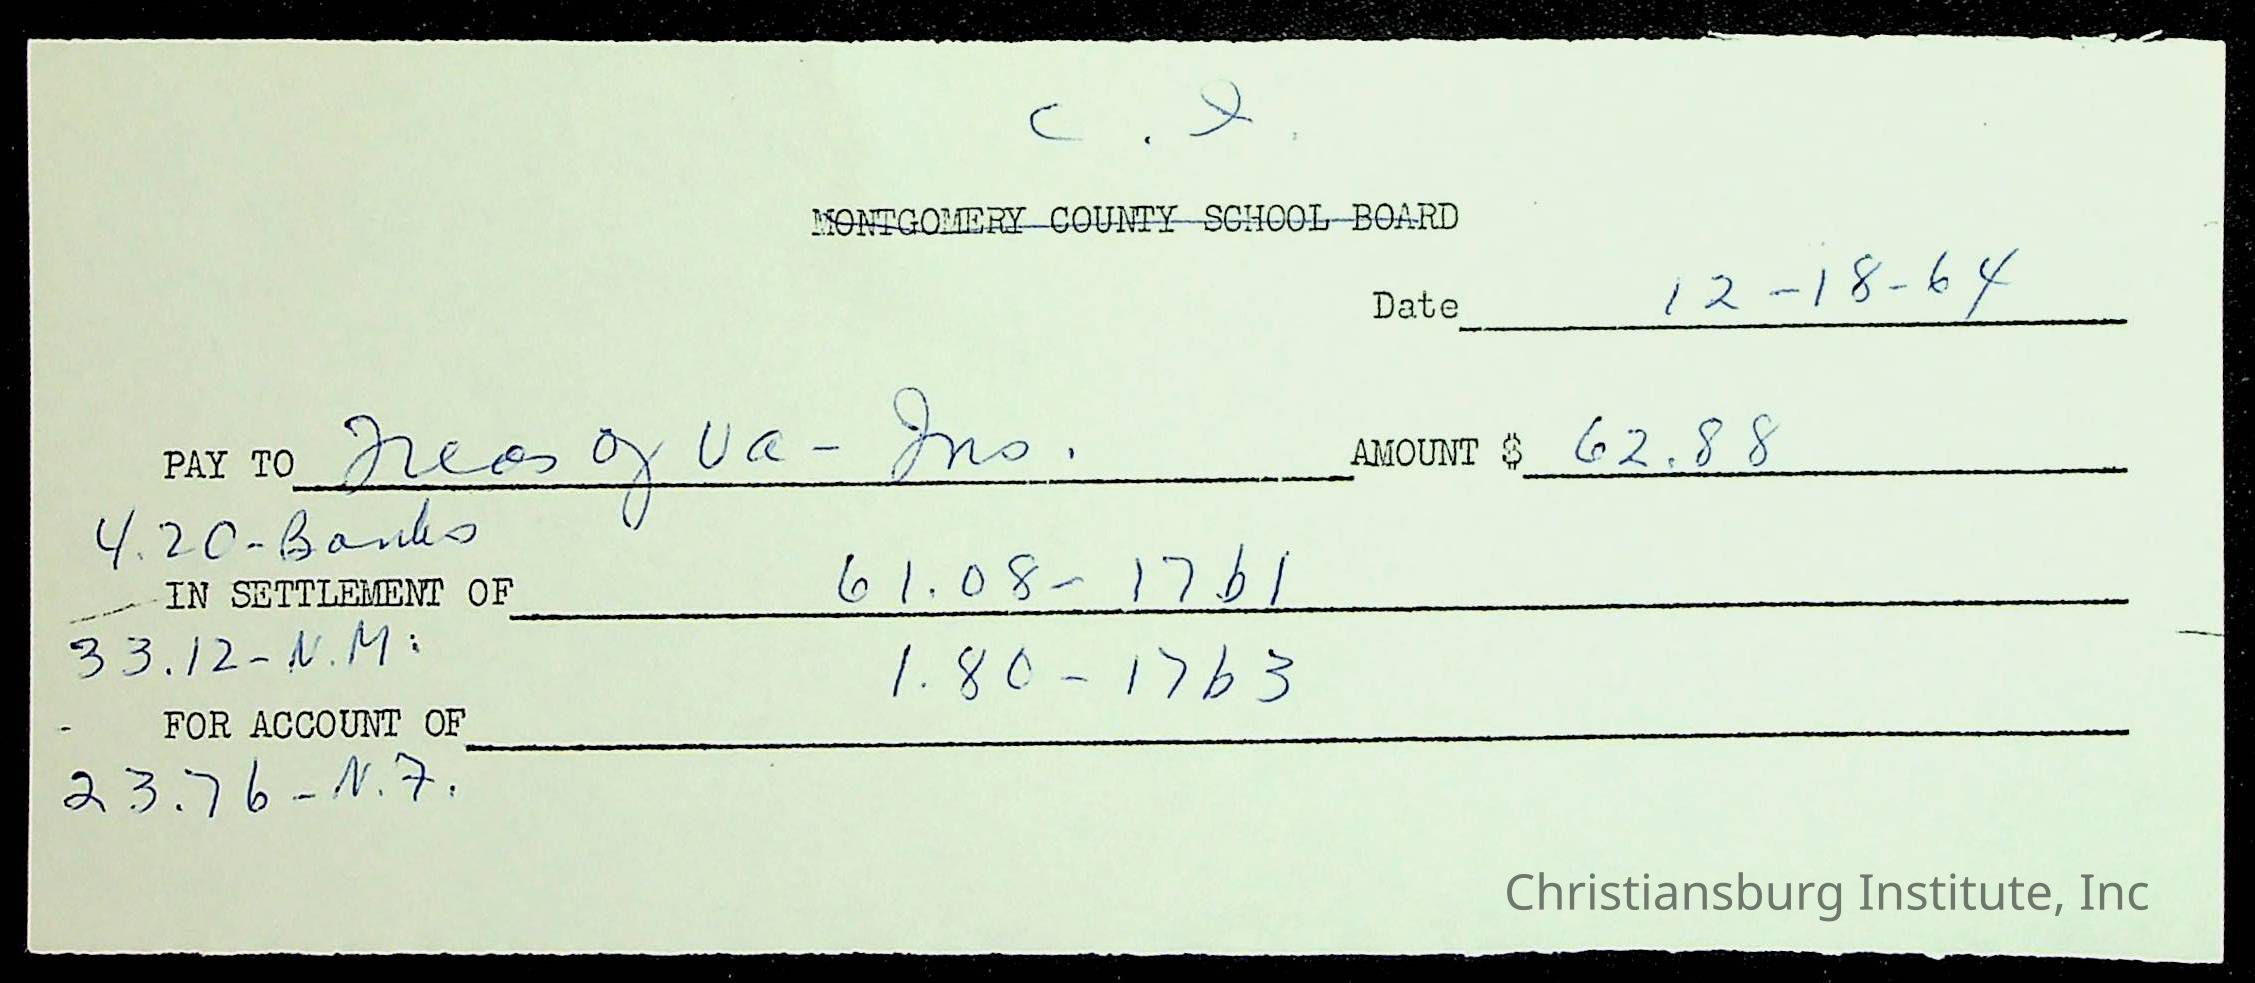 C. I.
MONTGOMERY COUNTY SCHOOL BOARD
Date 12-18-64
PAY TO Treas of Va - Ins. AMOUNT $ 62.88
4.20-Banks
IN SETTLEMENT OF 61.08- 17b1
33.12-N.M.
1.80 - 17b3
FOR ACCOUNT OF
23.76-N.F.
Christiansburg Institute, Inc